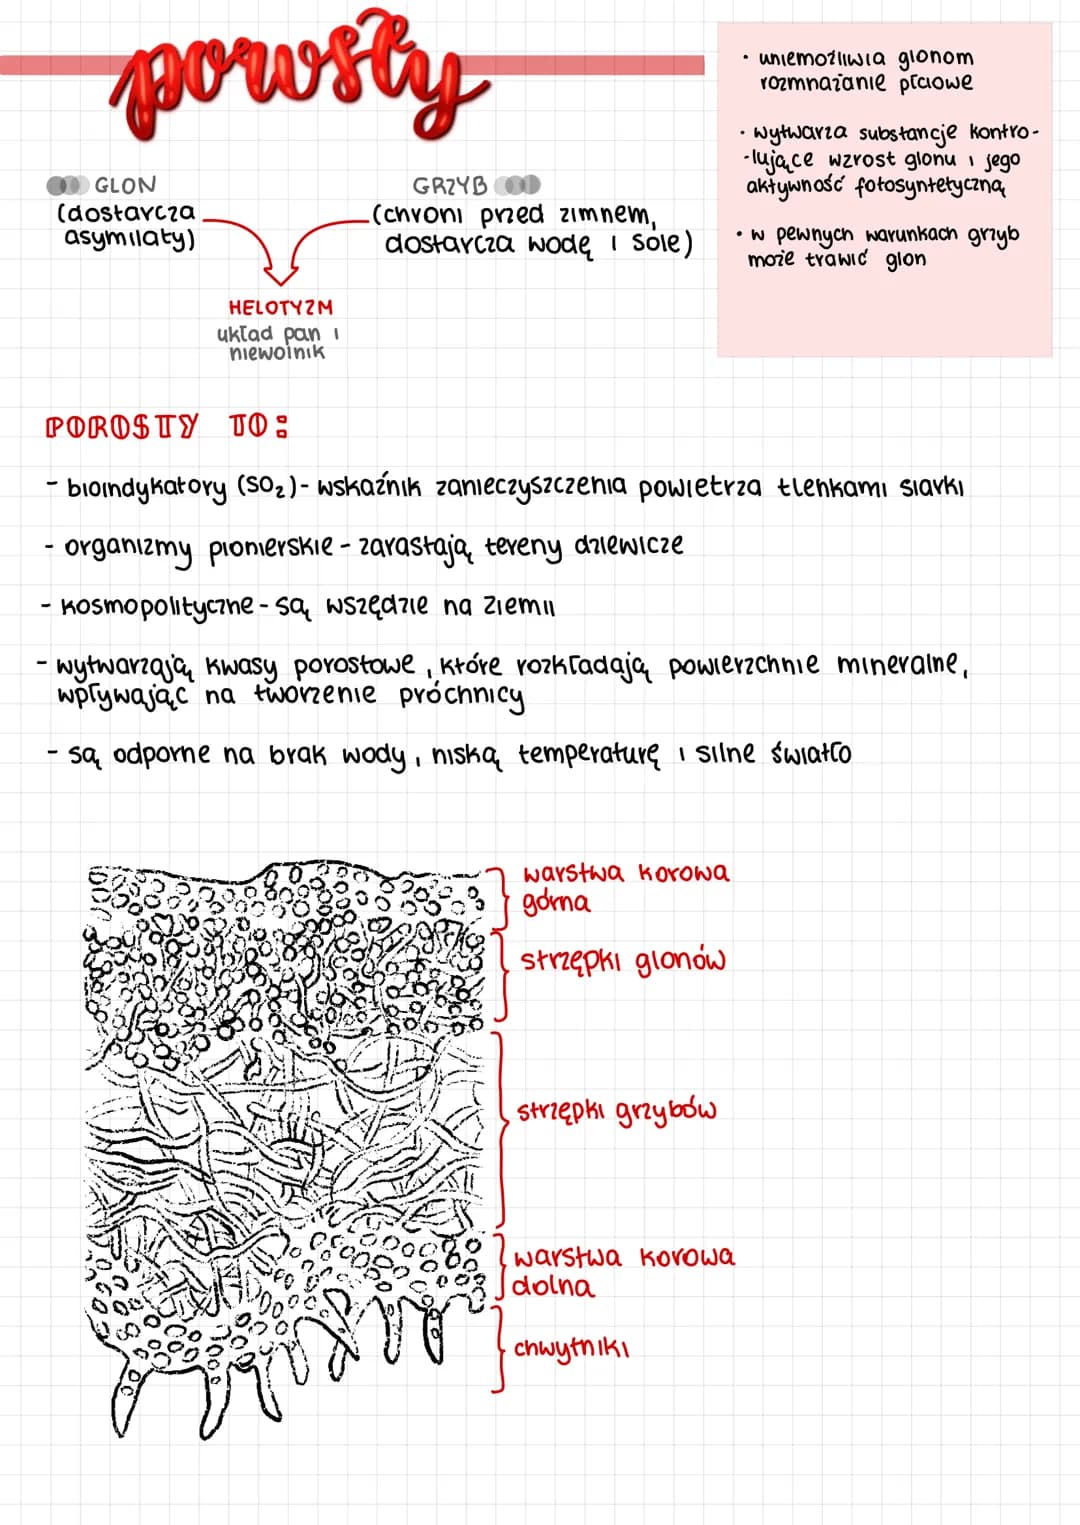 porosty
• uniemożliwia glonom
rozmnażanie płciowe
• wytwarza substancje kontro-
-lujące wzrost glonu i jego
aktywność fotosyntetyczną
• w pewnych warunkach grzyb
może trawić glon
GLON
(dostarcza
asymilaty)
GRZYB
(chroni przed zimnem,
dostarcza wodę i sole)
HELOTYZM
układ pan i
niewolnik
POROSTY TO:
- bioindykatory (SO₂) - wskaźnik zanieczyszczenia powietrza tlenkami siarki
- organizmy pionierskie - zarastają tereny dziewicze
- kosmopolityczne - są wszędzie na Ziemii
- wytwarzają kwasy porostowe, które rozkładają powierzchnie mineralne,
wpływając na tworzenie próchnicy
- są odporne na brak wody, niską temperaturę i silne światło
warstwa korowa
górna
strzępki glonów
strzępki grzybów
warstwa korowa
dolna
chwytniki